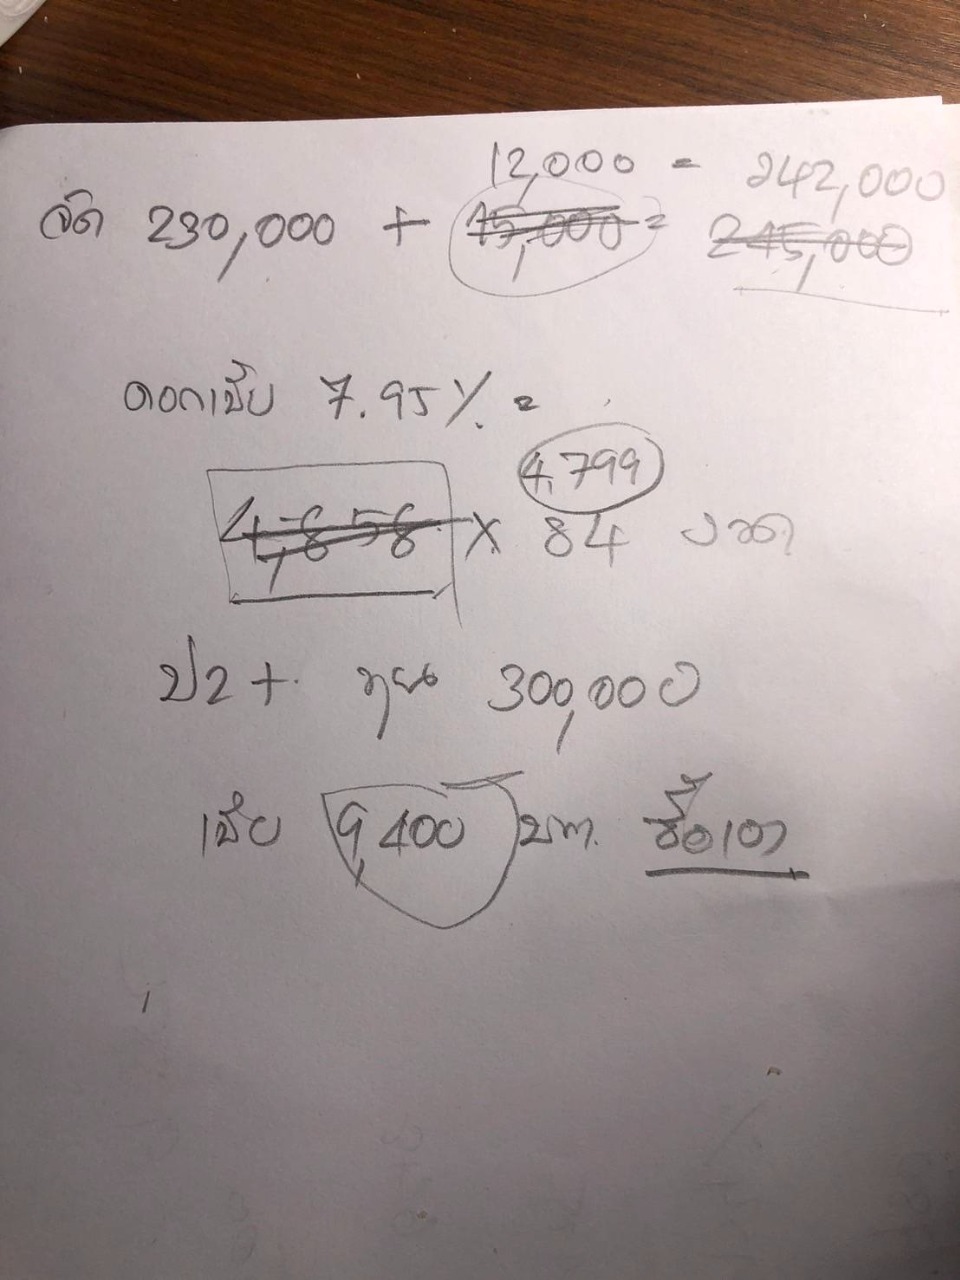 12,000 = 242,000
จัด 230,000 + 15,000 = 245,000
ดอกเบี้ย 7.95% =
4,799
4,858 x 84 งวด
ป2+ ทุน 300,000
เบี้ย 9,400 บาท ซื้อเอง